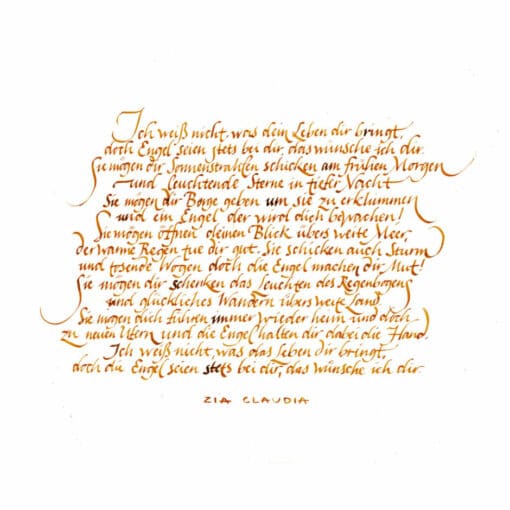 Ich weiß nicht, was dein Leben dir bringt,
doch Engel seien stets bei dir, das wünsche ich dir.
Sie mögen dir Sonnenstrahlen schicken am frühen Morgen
und leuchtende Sterne in tiefer Nacht
Sie mögen dir Berge geben um sie zu erklimmen
und ein Engel der wird dich bewachen!
Sie mögen öffnen deinen Blick übers weite Meer,
der warme Regen tue dir gut. Sie schicken auch Sturm
und tosende Wogen doch die Engel machen dir Mut!
Sie mögen dir schenken das Leuchten des Regenbogens
und glückliches Wandern übers weite Land
Sie mögen dich führen immer wieder heim und doch
zu neuen Ufern und die Engel halten dir dabei die Hand.
Ich weiß nicht, was das Leben dir bringt,
doch die Engel seien stets bei dir, das wünsche ich dir
ZIA CLAUDIA